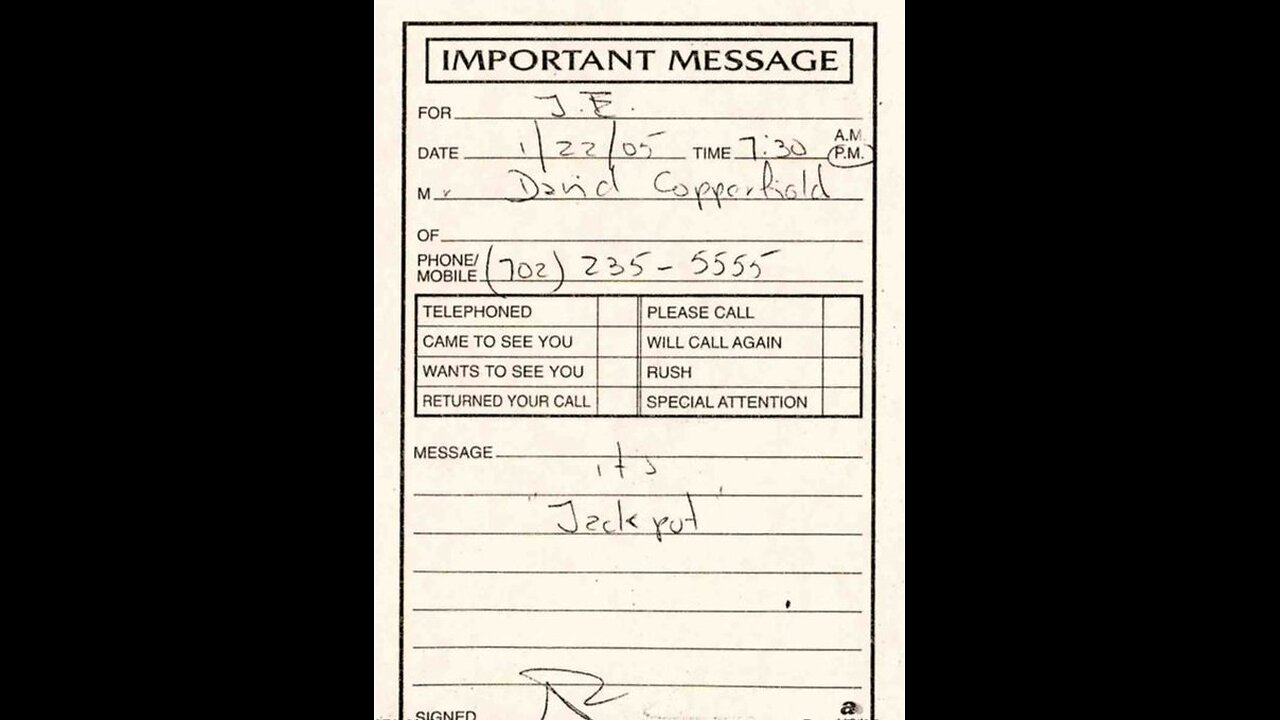 IMPORTANT MESSAGE
FOR J.E.
DATE 1/22/05 TIME 7:30 A.M. P.M.
Mr David Copperfield
OF
PHONE/MOBILE (702) 235-5555
TELEPHONED PLEASE CALL
CAME TO SEE YOU WILL CALL AGAIN
WANTS TO SEE YOU RUSH
RETURNED YOUR CALL SPECIAL ATTENTION
MESSAGE it's
"Jackpot"
SIGNED